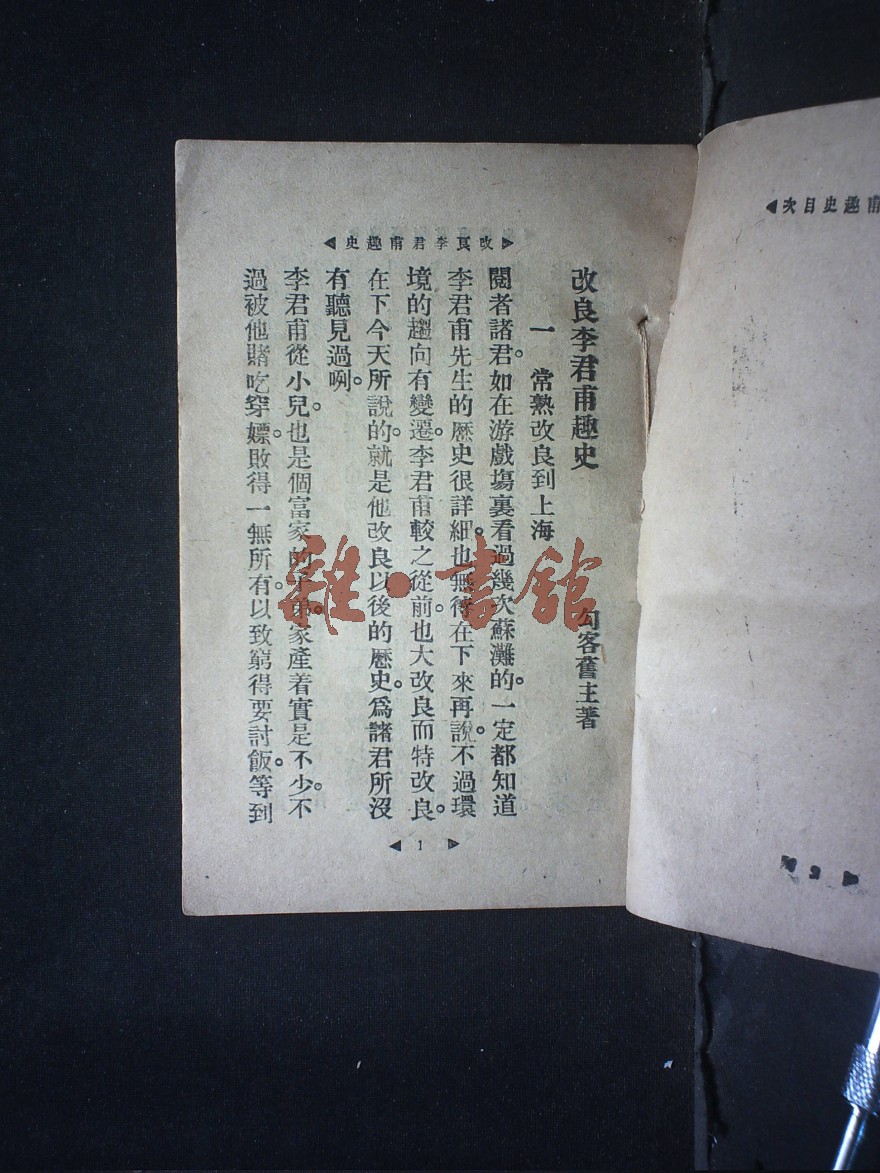 改良李君甫趣史
改良李君甫趣史
勾客舊主著
一 常熟改良到上海
閱者諸君。如在游戲塲裏看過幾次蘇灘的。一定都知道
李君甫先生的歷史很詳細。也無待在下來再說。不過環
境的趨向有變遷。李君甫較之從前。也大改良而特改良。
在下今天所說的。就是他改良以後的歷史。爲諸君所沒
有聽見過咧。
李君甫從小兒。也是個富家的子弟。家產着實是不少。不
過被他賭吃穿嫖。敗得一無所有。以致窮得要討飯。等到
1
甫趣史目次
2
雜·書館